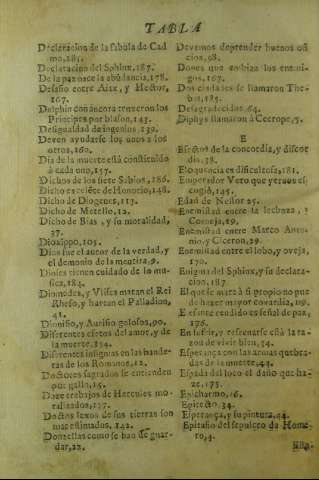 TABLA
Declaracion de la fabula de Cadmo,
Declaracion del Sphinx, 187.
De la paz nace la abũdancia, 178.
Desafio entre Aiax, y Hector,
167.
Delphin con áncora traxeron los
Principes por blason, 143.
Desigualdad de ingenios, 139.
Deven ayudarse los unos a los
otros, 160.
Dia de la muerte está constituido
à cada uno, 157.
Dichos de los siete Sabios, 186.
Dicho excelẽte de Honorio, 148.
Dicho de Diogenes, 113.
Dicho de Metello, 12.
Dicho de Bias, y su moralidad,
37.
Dioxippo, 105.
Dios fue el autor de la verdad, y
el demonio de la mentira, 9.
Dioses tienen cuidado de la musica,
184.
Diomedes, y Ulises matan el Rei
Rheso, y hurtan el Palladion,
41.
Dionisio, y Aurelio golosos, 90.
Diferentes efetos del amor, y de
la muerte, 234.
Diferentes insignias en las banderas
de los Romanos, 12.
Doctores sagrados se entienden
por gallo, 15.
Doze trabajos de Hercules moralizados,
137.
Doctos lexos de sus tierras son
mas estimados, 142.
Donzellas como se han de guardar,
22.
Devemos deprender buenos oficios,
98.
Dones que embian los enemigos,
167.
Dos ciudades se llamaron Thebas,
185.
Desagradecidos, 64.
Diphys llamaron à Cecrope, 5.
E
Efectos de la concordia, y discordia,
38.
Eloquencia es dificultosa, 181.
Emperador Vero que yervas escogiò,
145.
Edad de Nestor 25.
Enemistad entre la lechuza, y
Corneja, 19.
Enemistad entre Marco Antonio,
y Ciceron, 29.
Enemistad entre el lobo, y oveja,
170.
Enigma del Sphinx, y su declaracion,
187.
El que se matà à si propio no puede
hazer mayor covardia, 119.
El escudo rendido es señal de paz,
176.
En sufrir, y refrenarse està la razon
de vivir bien, 34.
Esperança con las armas quebradas
de la muerte, 44.
Espada del loco el daño que haze,
175.
Epicharmo, 16.
Epicteto, 34.
Esperança, y su pintura, 44.
Epitafio del sepulcro de Homero,
4.